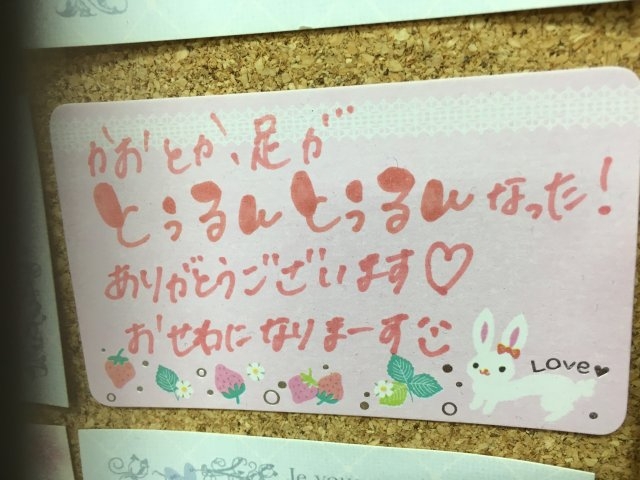 かおとか、足が
とぅるんとぅるんなった!
ありがとうございます♡
おせわになりまーす
LOVE
Je vou